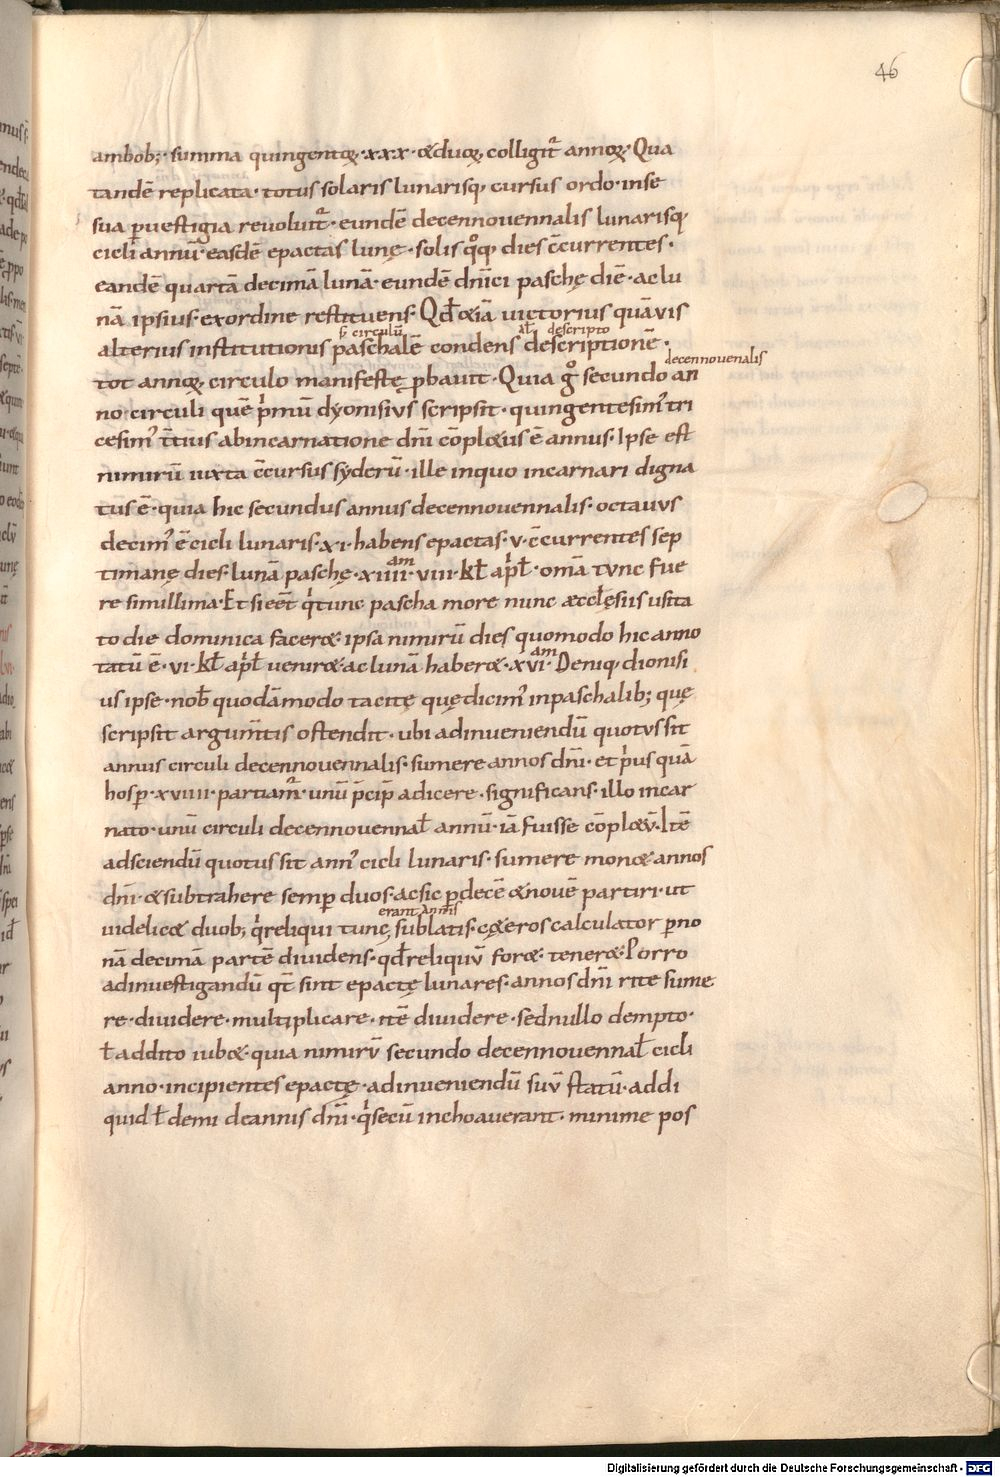 46
ambob; · summa quingentoꝝ · xxx · & duoꝝ, colligit̄ annoꝝ · Qua
tandē replicata · totus solaris lunarisq; cursus ordo · inse
sua p̱uestigia reuoluit̄ · eundē decennouennalis lunarisq;
cicli annū · easdē epactas lunę · solis qͦq; dies c̄currentes ·
eandē quartā decimā lunā · eundē dn̄ici paschę diē · aclu
nā ipsius · exordine restituens · Qd̄ &iā uictorius quāuis
ł circulū ał descripto
alterius institutionis paschalē condens descriptionē ·
decennouenalis
tot annoꝝ, circulo manifestę ꝓbauit · Quia gͦ secundo an
no circuli quē p̍mū dyonisius scripsit · quingentesim᾽ tri
cesim᾽ t̄tius abincarnatione dn̄i cōpl&us ē annus · Ipse est
nimirū iuxta c̄cursus syderū · ille inquo incarnari digna
tus ē · quia hic secundus annus decennouennalis · octauus
decim᾽ ē cicli lunaris · xi · habens epactas · v · c̄currentes sep
timanę dies · lunā paschę · xiiii·am· viii · kł ap̍ł · om̄a tunc fue
re simillima · Et si eēt q̍ tunc pascha more nunc æccłęsiis usita
to die dominica facer& · ipsa nimirū dies quomodo hic anno
tatū ē · vi · kł ap̍ł uenir& · ac lunā haber& · xvi·am· Deniq; dionisi
us ipse · nob̄ quodāmodo tacitę quę dicim᾽ inpaschalib; quę
scripsit argum̄tis ostendit · ubi adinueniendū quotus sit
annus circuli decennouennalis · sumere annos dn̄i · et p̍us quā
hos ꝑ · xviiii · partiam̄ · unū p̄cip̄ adicere · significans · illo incar
nato · unū circuli decennouennał annū · iā fuisse cōpl&ū · Itē
adsciendū quotus sit ann᾽ cicli lunaris · sumere mon& annos
dn̄i · & subtrahere semꝑ duos · acsic ꝑ decē & nouē partiri · ut
erant annis
uidelic& duob; q̍ reliqui tunc, sublatis · cęteros calculator ꝑ no
nā decimā partē diuidens · qd̄ reliquū for& · tener& · Porro
adinuestigandū qt̄ sint epactę lunares · annos dn̄i rite sume
re · diuidere · multiplicare · itē diuidere · sed nullo dempto ·
ł addito iub& · quia nimirū secundo decennouennał cicli
anno · incipientes epactę · adinueniendū suū statū · addi
quid ł demi deannis dn̄i · q̍ secū inchoauerant · minime pos
Digitalisierung gefördert durch die Deutsche Forschungsgemeinschaft - DFG